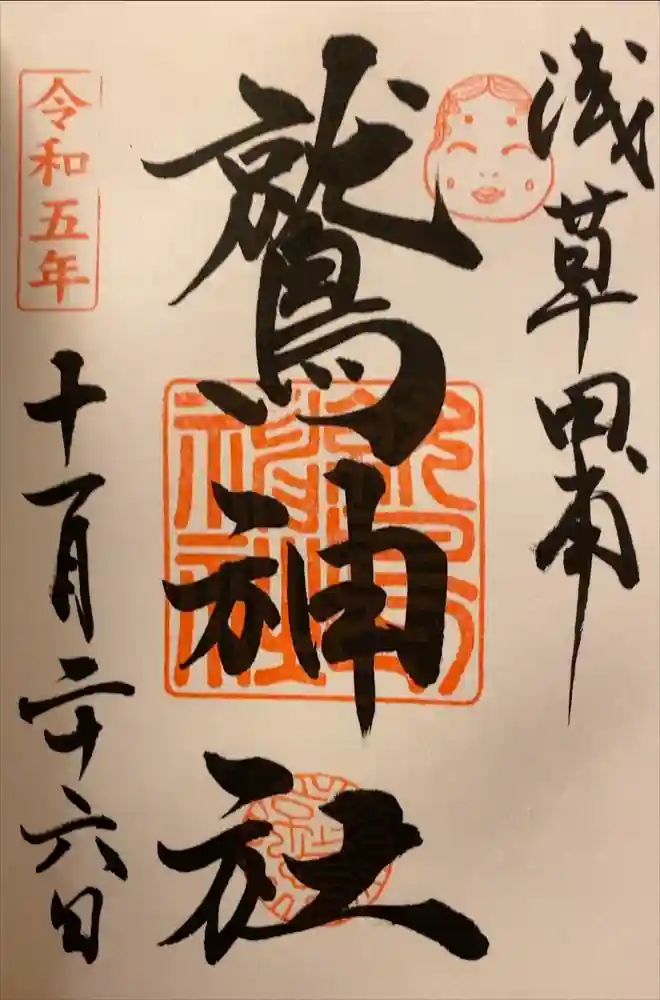 浅草田甫
鷲神社
鷲神社
令和五年
十一月二十六日